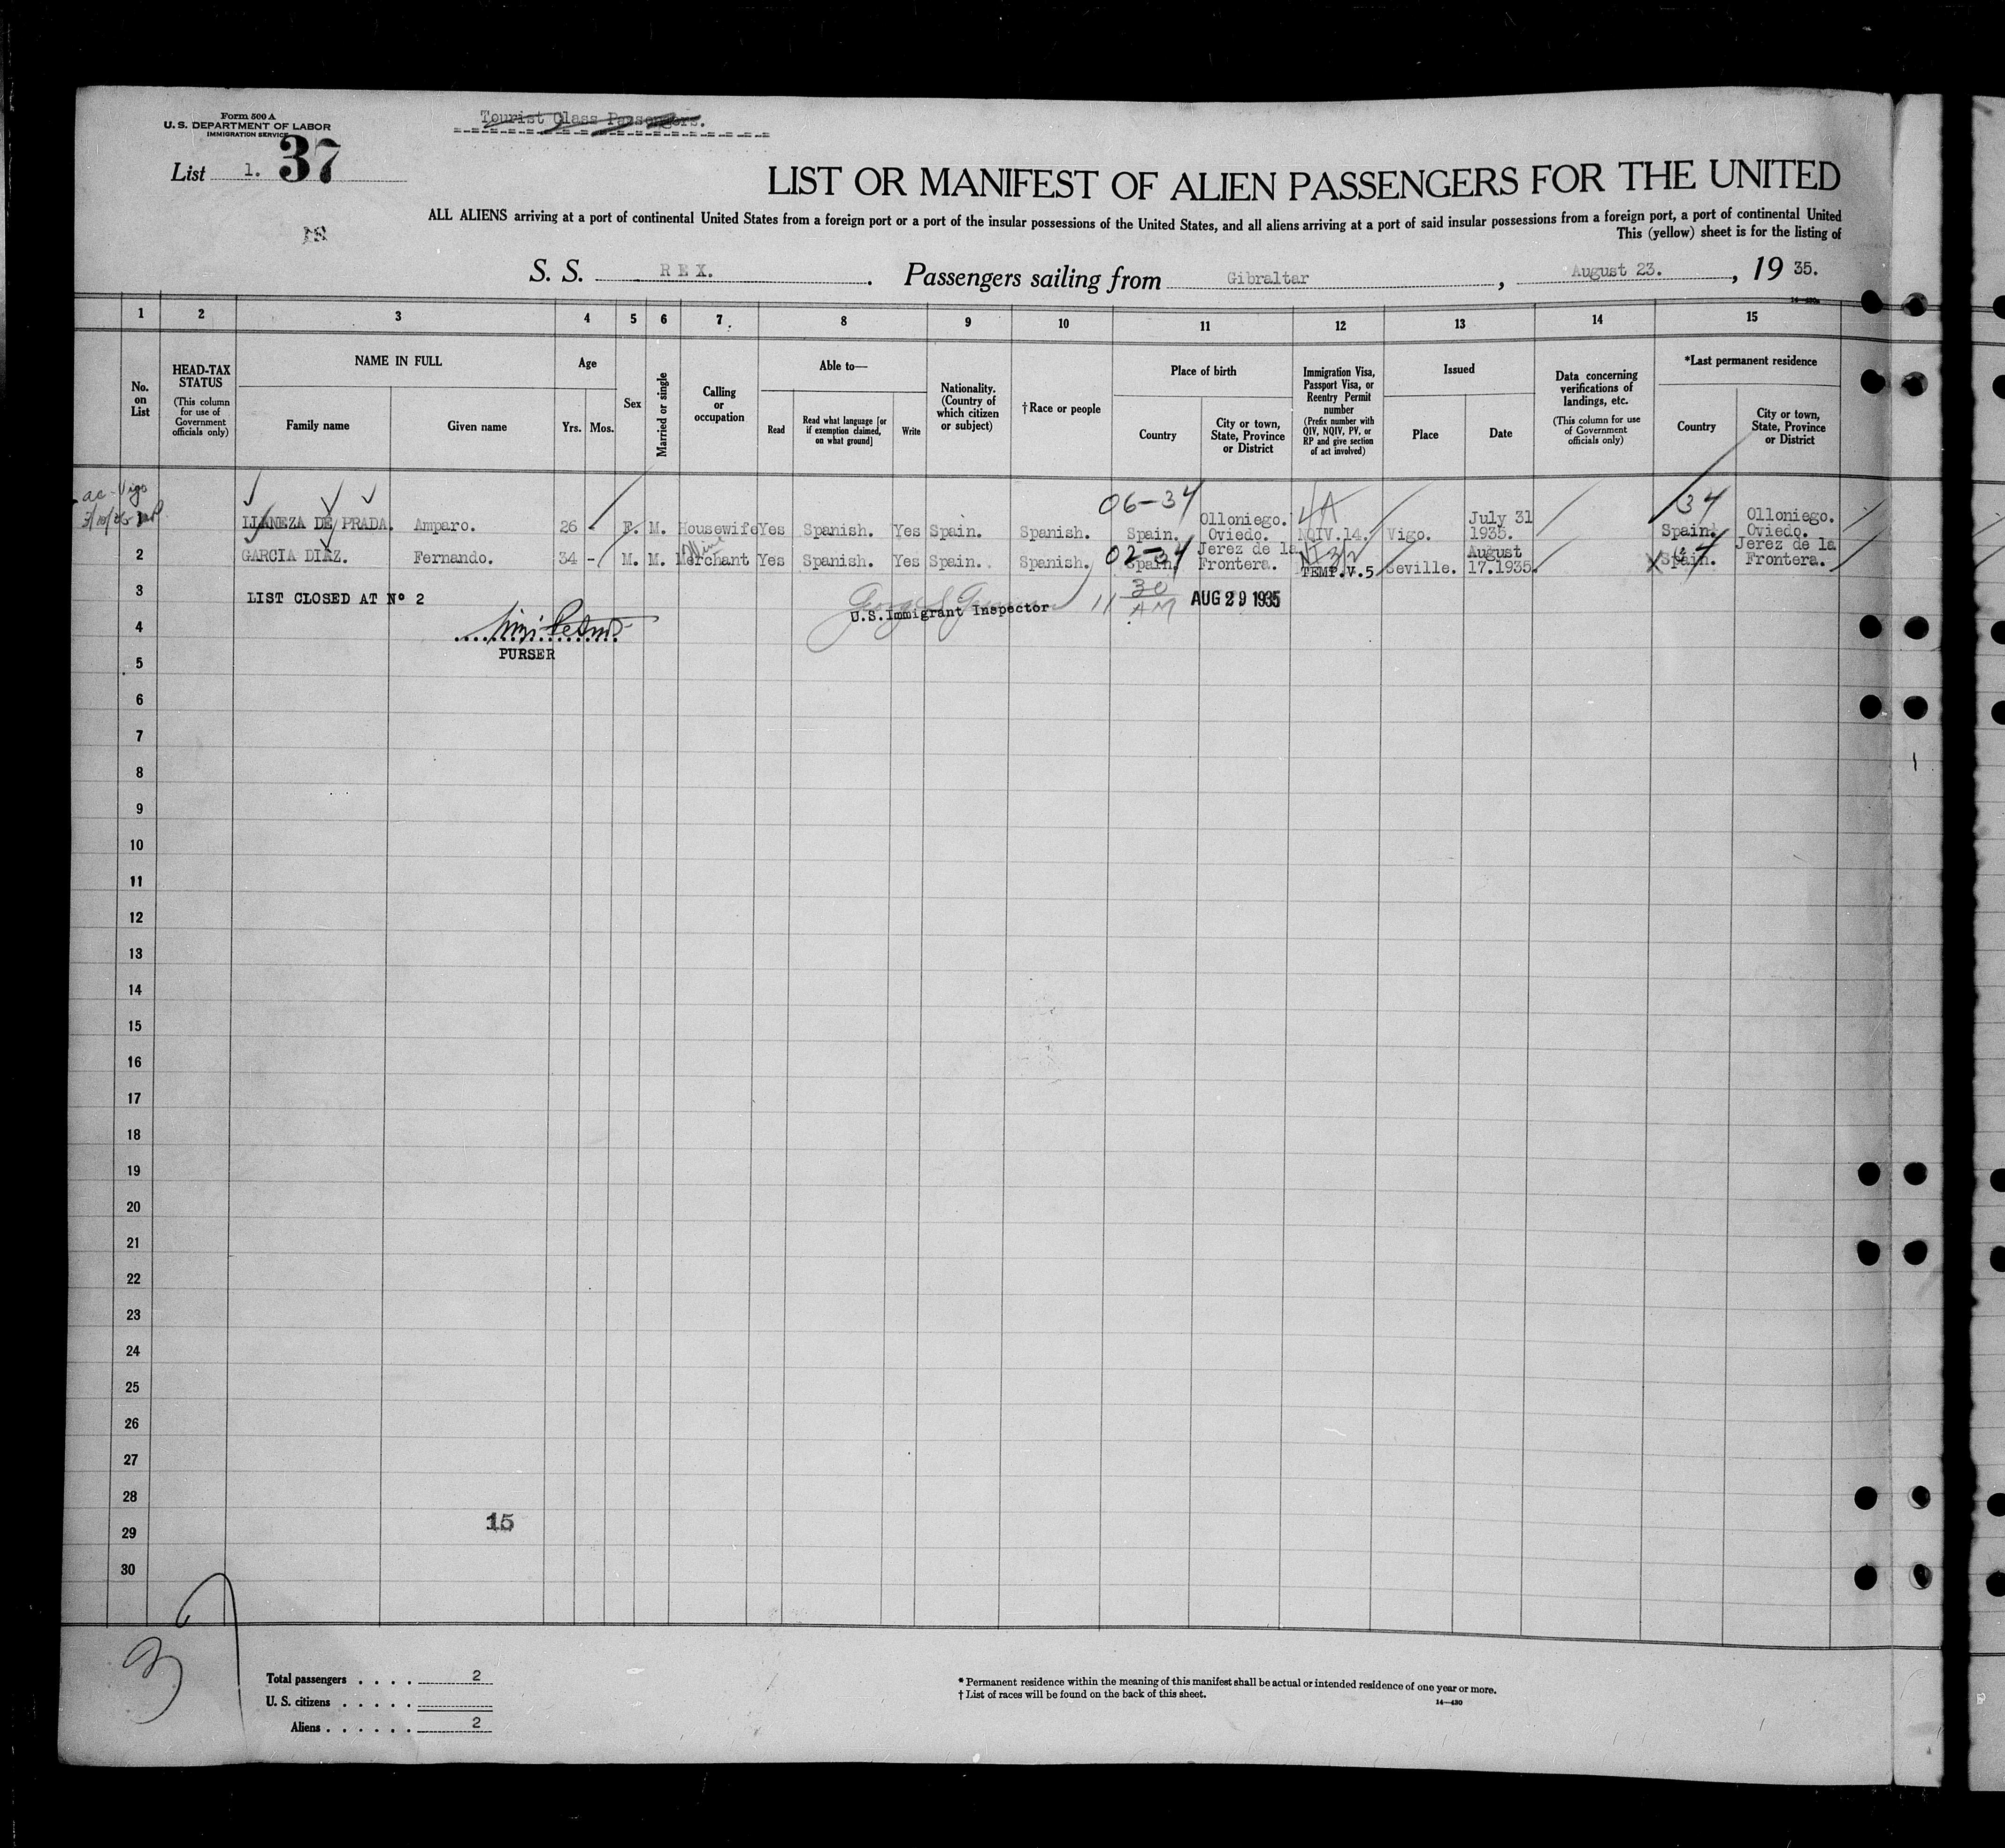 Form 500 A
U. S. DEPARTMENT OF LABOR
IMMIGRATION SERVICE
List 1. 37
Tourist Class Passengers.
LIST OR MANIFEST OF ALIEN PASSENGERS FOR THE UNITED
ALL ALIENS arriving at a port of continental United States from a foreign port or a port of the insular possessions of the United States, and all aliens arriving at a port of said insular possessions from a foreign port, a port of continental United
This (yellow) sheet is for the listing of
S. S. REX. Passengers sailing from Gibraltar, August 23., 19 35.
14—430a
1 2 3 4 5 6 7 8 9 10 11 12 13 14 15
No. on List
HEAD-TAX STATUS
(This column for use of Government officials only)
NAME IN FULL
Family name Given name
Age
Yrs. Mos.
Sex
Married or single
Calling or occupation
Able to—
Read
Read what language [or if exemption claimed, on what ground]
Write
Nationality. (Country of which citizen or subject)
†Race or people
Place of birth
Country
City or town, State, Province or District
Immigration Visa, Passport Visa, or Reentry Permit number
(Prefix number with QIV, NQIV, PV, or RP and give section of act involved)
Issued
Place Date
Data concerning verifications of landings, etc.
(This column for use of Government officials only)
*Last permanent residence
Country
City or town, State, Province or District
ac-Vigo
06-34 4A 34
LLANEZA DE PRADA. Amparo. 26 - F. M. Housewife Yes Spanish. Yes Spain. Spanish. Spain. Olloniego. Oviedo. NQIV.14. Vigo. July 31 1935. Spain. Olloniego. Oviedo.
02-34
2 GARCIA DIAZ. Fernando. 34 - M. M. Merchant Yes Spanish. Yes Spain. Spanish. Spain. Jerez de la Frontera. TEMP.V.5 Seville. August 17.1935. Spain. Jerez de la Frontera.
3 LIST CLOSED AT Nº 2
U.S.Immigrant Inspector 11 30 AM AUG 29 1935
4
PURSER
5
6
7
8
9
10
11
12
13
14
15
16
17
18
19
20
21
22
23
24
25
26
27
28
15
29
30
37
Total passengers . . . . 2
U. S. citizens . . . . .
Aliens . . . . . . 2
* Permanent residence within the meaning of this manifest shall be actual or intended residence of one year or more.
† List of races will be found on the back of this sheet.
14—430